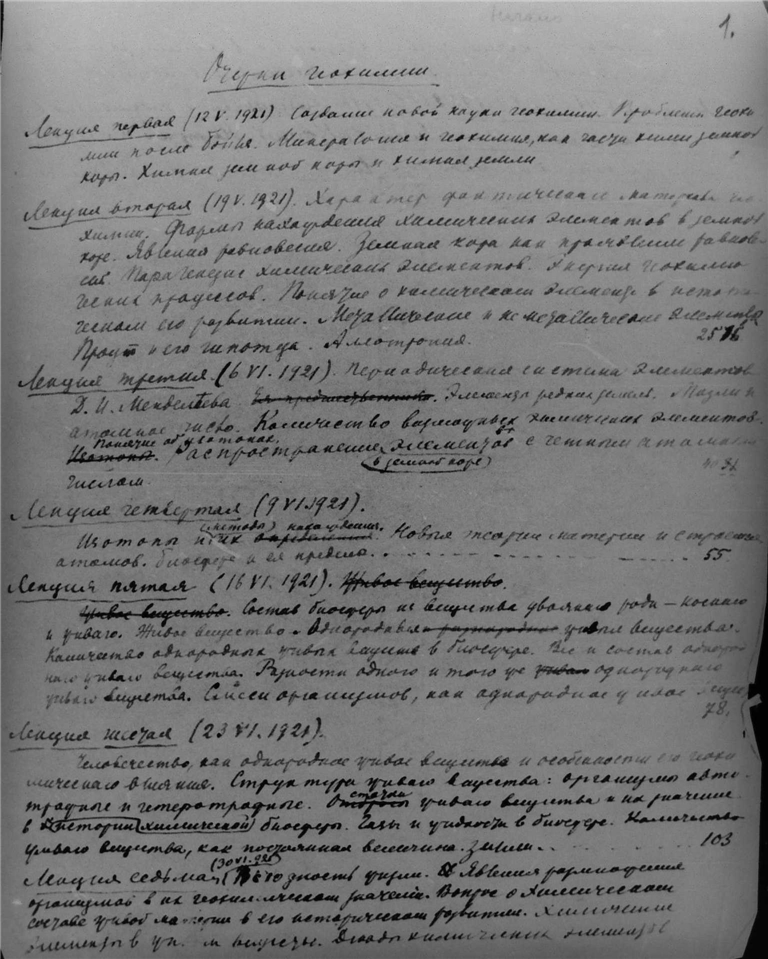 Начало
1.
Очерки геохимии.
Лекция первая (12 V. 1921) Создание новой науки геохимии. Проблемы геохи
мии после Бойля. Минералогия и геохимия, как части химии земной
коры. Химия земной коры и химия земли
Лекция вторая (19 V. 1921). Характер фактический материала гео-
химии. Формы нахождения химических элементов в земной
коре. Явления равновесия. Земная кора как проявление равнове-
сия. Парагенезис химических элементов. Энергия геохими
ческих процессов. Понятие о химическом элементе в истори-
ческом его развитии. Металлические и не металлические элементы
Проут и его гипотеза. Аллотропия. 25
Лекция третия. (6 VI. 1921). Периодическая система элементов
Д. И. Менделеева. Элементы редких земель. Мозли и
атомное число. Количество возможных химических элементов.
Понятие об изотопах.
Изотопы. Распространение элементов с четным атомным
(в земной коре) 31
числом.
Лекция четвертая (9 VI. 1921).
(методы) нахождения.
Изотопы и их определения. Новыя теории материи и строения
атомов. Биосфера и ея пределы. - - - - - - 55
Лекция пятая (16 VI. 1921). Живое вещество.
Живое вещество. Состав биосферы из вещества двоякаго рода — коснаго
и живаго. Живое вещество. Однородныя и разнородныя живыя вещества.
Количество однородных живых веществ в биосфере. Вес и состав однород
наго живаго вещества. Разности одного и того же живаго однороднаго
живаго вещества. Смеси организмов, как однородное живое
78.
Лекция шестая (23 VI. 1921).
Человечество, как однородное живое вещество и особенности его геохи
мическаго влияния. Структура живаго вещества: организмы авто-
трофные и гетеротрофные. живаго вещества и их значение
в истории химической биосферы. Газы и жидкости в биосфере. Количество
живаго вещества, как постоянная величина земли. . . 103
(30 VI. 921)
Лекция седьмая. жизни. Явления размножения
организмов в их геохимическом значении. Вопрос о химическом
составе живой материи в его историческом развитии. Химические
элементы в веществе. Декады химических элементов